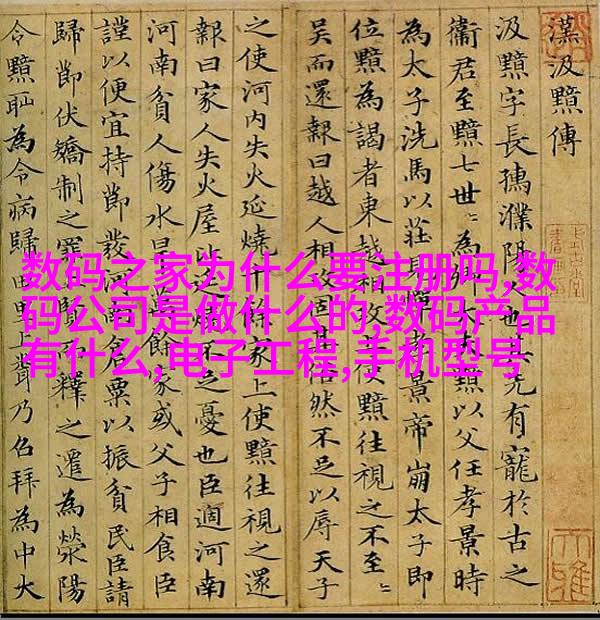 漢汲黯傳
汲黯字長孺濮陽人也其先有寵於古之
衛君至黯七世〻為卿大夫黯以父任孝景時
為太子洗馬以莊見憚孝景帝崩太子即
位黯為謁者東越相攻上使黯往視之不至〻
吳而還報曰越人相攻固其俗然不足以辱天子
之使河內失火延燒千餘家上使黯往視之還
報曰家人失火屋比延燒不足憂也臣過河南
河南貧人傷水旱萬餘家或父子相食臣
謹以便宜持節發河南倉粟以振貧民臣請
歸節伏矯制之罪上賢而釋之遷為滎陽
令黯恥為令病歸田里上聞乃召拜為中大
数码之家为什么要注册吗,数
码公司是做什么的,数码产品
有什么,电子工程,手机型号